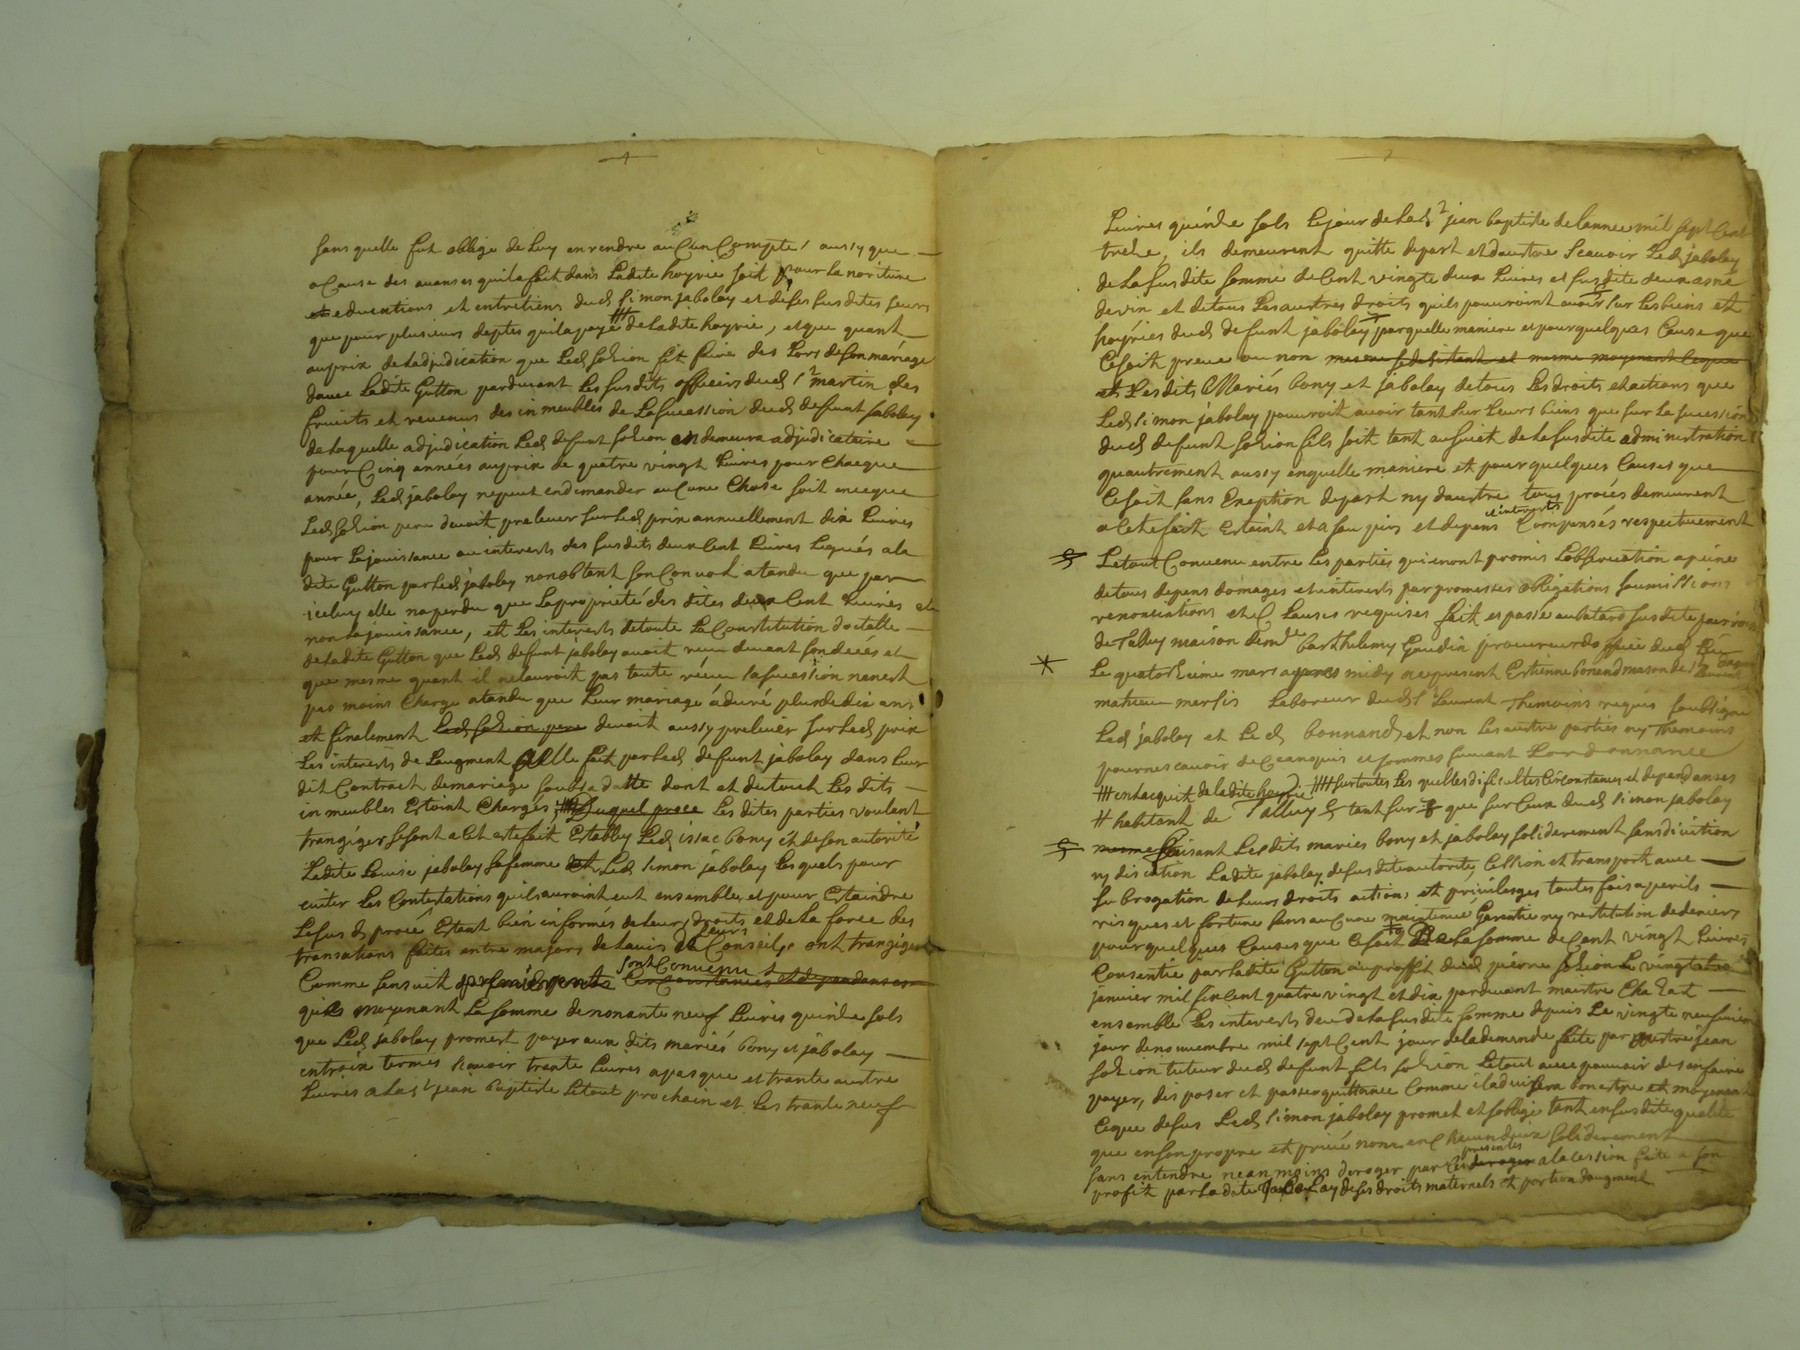 sans quelle fut obligé de luy en rendre aucun compte, aussy que
a cause des avanses quil a fait dans ladite hoyrie soit pour la noriture
et educations et entretiens dud simon jabolay et de ses susdites seurs
que pour plusieurs deptes quil a payé de ladite hoyrie, et que quant
au prix de ladjudication que led sohion fit faire des lors de son mariage
avec ladite Gutton pardevant les susdits officiers dud St martin des
fruits et revenus des inmeubles de la sucession dud defunt jabolay
de laquelle adjudication led defunt sohion en demeura adjudicataire
pour cinq années au prix de quatre vingt livres pour chacque
année, led jabolay ne peut en demander aucune chose soit
led sohion pere devoit prelever sur led prix annuellement dix livres
pour la jouissance ou interests des susdits deux cent livres legués a la
dite Gutton par led jabolay nonobstant son convol atandu que par
iceluy elle na perdu que la proprieté des dites deux cent livres et
non la jouissance, et les interests de toute la constitution doctalle
de ladite Gutton que led defunt jabolay avoit receu devant son decés et
que mesme quant il ne lauroit pas toute receu la sucession nen est
pas moins chargé atandu que leur mariage a duré plus de dix ans
et finalement led sohion pere devoit aussy prelever sur led prix
les interests de laugment a elle fait par led defunt jabolay dans leur
dit contract de mariage soubs sa datte dont et du tout les dits
inmeubles estoint chargés duquel procé les dites parties voulant
tranziger se sont a cet effait establly led issac bony et de son autorité
ladite Louise jabolay sa femme et led simon jabolay lesquels pour
eviter les contestations quils auroint eut ensembles et pour estaindre
le susd procé estant bien informés de leurs droits et de la force des
transations faites entre majors de lavis de leurs conseils, ont tranzigé
sont convenu
comme sensuit circonstances et dependanses
quils moyenant la somme de nonante neuf livres quinze sols
que led jabolay promest payer aux dits mariés bony et jabolay
en trois termes scavoir trante livres a pasque et trante autre
livres a la St jean baptiste le tout prochain et les trante neuf
livres quinze sols le jour de lad St jean baptiste de lannee mil sept cent
treze, ils demeurent quitte depart et dautre scavoir led jabolay
de la susdite somme de cent vingte deux livres et susdite
de vin et de tous les autres droits quils pouvoint avoir sur les biens et
hoyries dud defunt jabolay par quelle maniere et pour quelques cause que
ce soit preveu ou non mesme moyenant ce que
et les dits mariés bony et jabolay de tous les droits et actions que
led simon jabolay pouvroit avoir tant sur leurs biens que sur la sucession
dud defunt sohion fils soit tant au sujet de la susdite administration
quautrement aussy en quelle maniere et pour quelques causes que
ce soit sans exception depart ny dautre tous procés demeurent
et interests
a cet effait estaint et asoupis et depens compansés respectivement
le tout convenu entre les parties qui en ont promis lobservation a peine
de tous depens domages et interests par promesses obligations soumissions
renonciations et clauses requises fait et passé au batard susdite parroisse
de Talluy maison de barthelemy Gaudin procureur doffice dud
le quatorzieme mars apres midy es presant Estienne bonand mason de St
mathieu mersis laboreur dud St Laurent themoins requis soubsigné
led jabolay et led bonnand et non les autre parties ny themoins
pour ne scavoir de ce anquis et sommés suivant lordonnance
en lacquit de ladite hoyrie sur toutes lesquelles dificultes circonstances et dependanses
habitant de Talluy tant sur que sur ceux dud simon jabolay
mesme faisant lesdits mariés bony et jabolay soliderement sans division
ny discution ladite jabolay de susdite autorité, cession et transport avec
subrogation de leurs droits actions et privileges toutes fois a perils
risques et fortune sans aucune maintenue garantie ny restitution de deniers
pour quelques causes que ce soit de la somme de cent vingt livres
consentie par ladite Gutton au proffit dud pierre sohion le
janvier mil six cent quatre vingt et dix pardevant maistre
ensemble les interests de la susdite somme depuis le vingte neufvieme
jour de novembre mil sept cent jour de la demande faite par maitre jean
sohion tuteur dud defunt fils sohion le tout avec pouvoir de sen faire
payer, disposer et passer quittance comme il advisera bon estre et moyenant
ce que desus led simon jabolay promet et soblige tant en susdite qualité
que en son propre et privé nom soliderement
presantes
sans entendre neanmoins deroger par les deroger a la cession faite a son
profit par ladite jabolay de ses droits maternels et portion daugment